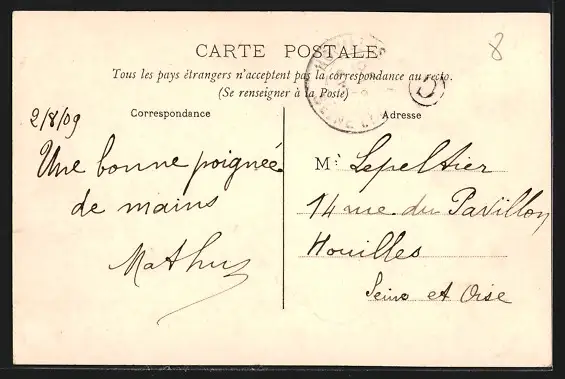 CARTE POSTALE
Tous les pays étrangers n'acceptent pas la correspondance au recto.
(Se renseigner à la Poste)
8
Correspondance
2/8/09
Une bonne poignée
de mains
Adresse
Mr Lepeltier
14 rue du Pavillon
Houilles
Seine et Oise